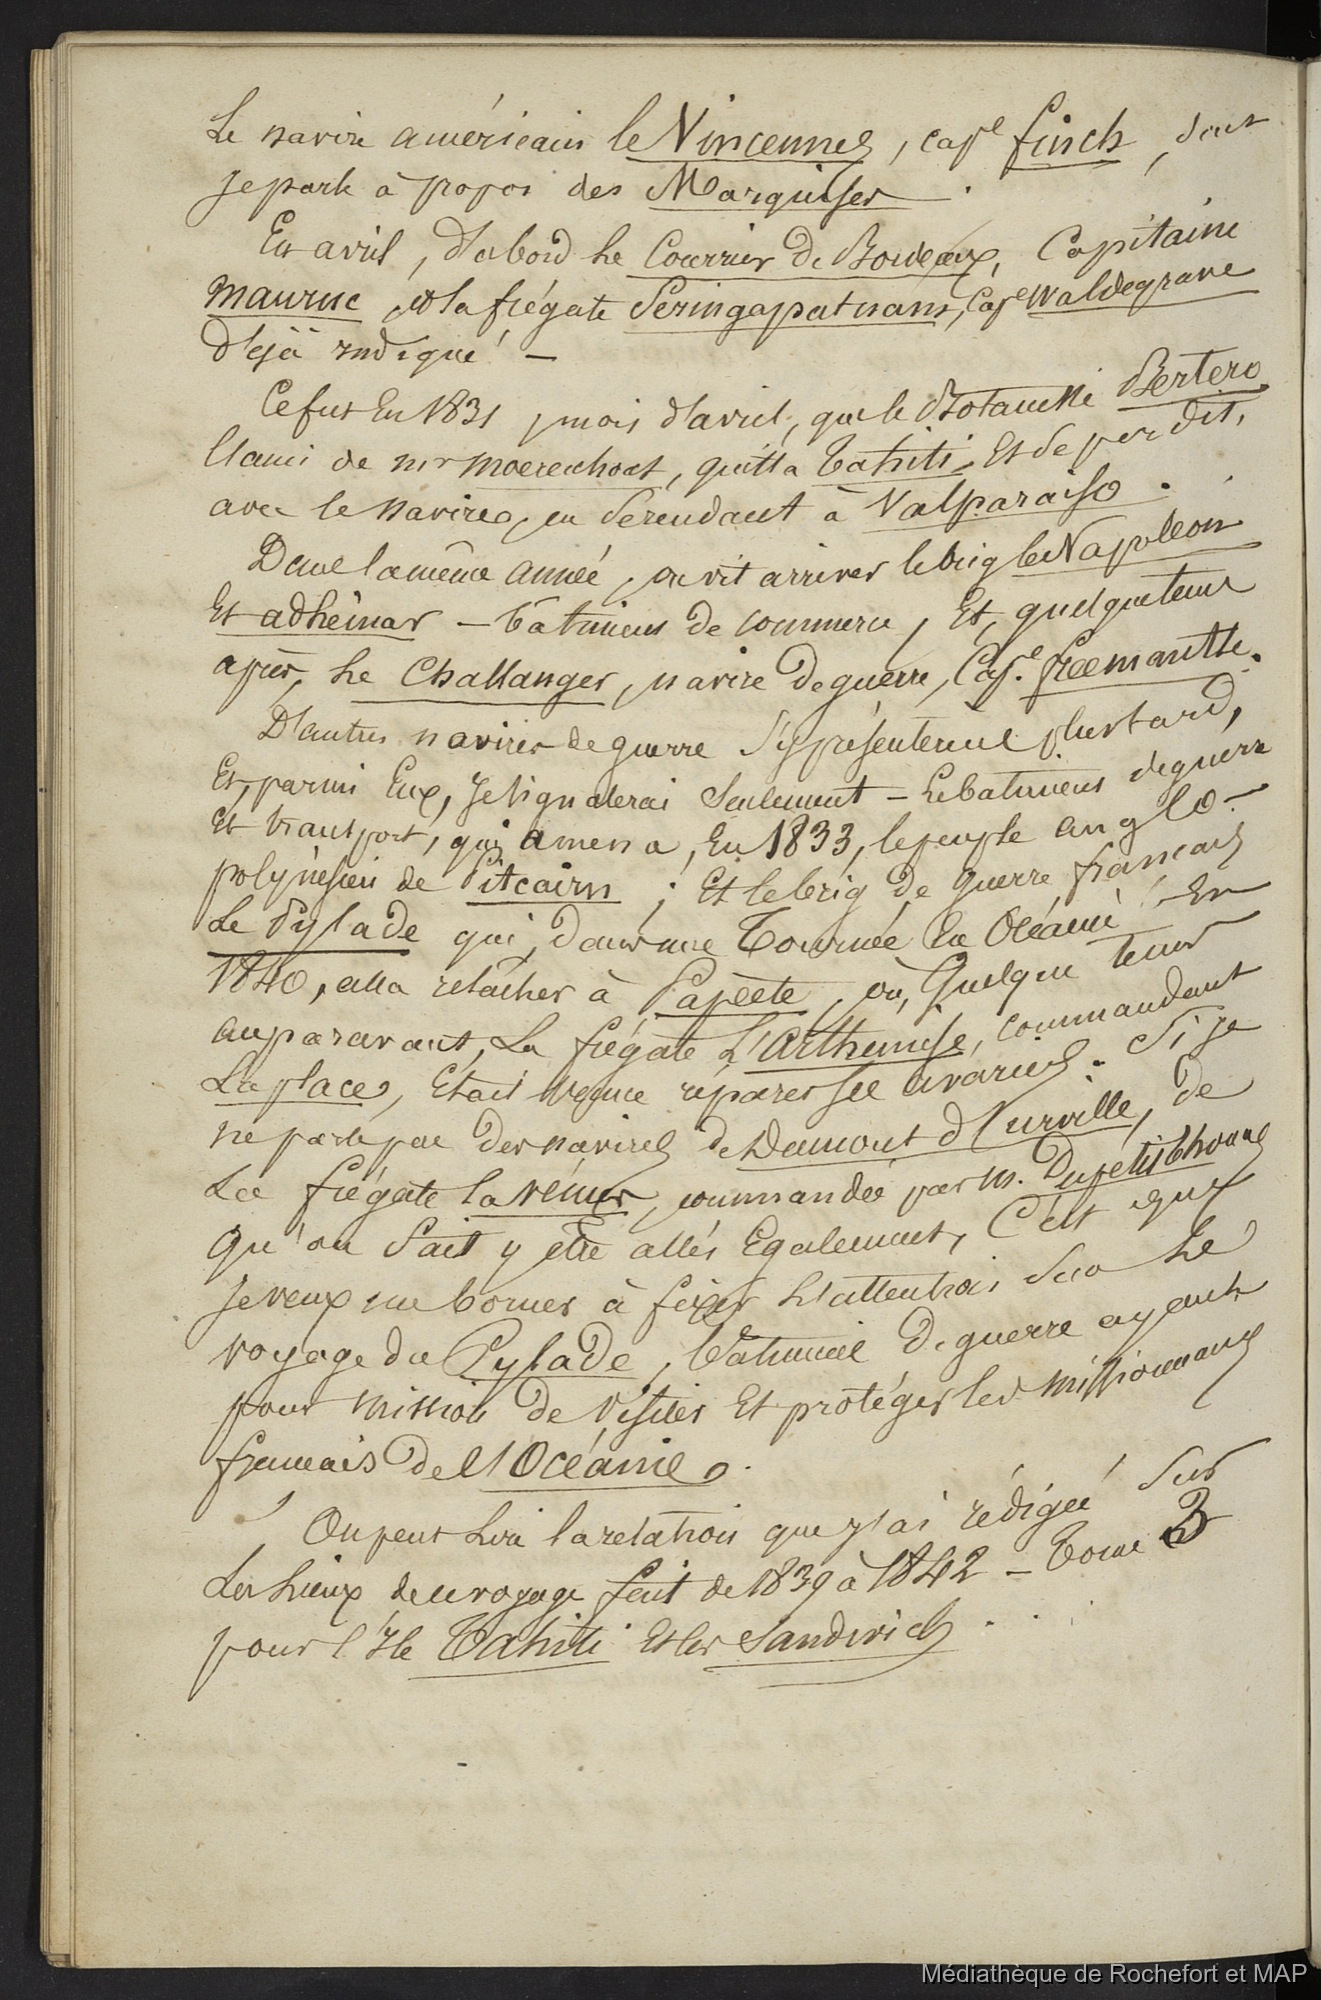 Le navire américain le Vincennes, cape finch, dont
je parle à propos des Marquises.
En avril, d'abord Le Courrier de Bordeaux, Capitaine
Mauruc, et la frégate Seringapatnam, Cape Waldegrave
déjà indiqué. —
Ce fut En 1831, mois d'avril, que le Botaniste Bertero
l'ami de mr moerenhout, quitta Tahiti, Et se perdit,
avec le navire, en se rendant à Valparaiso.
Dans la même année, on vit arriver le brig le Napoléon
Et adhémar — bâtimens de commerce, Et, quelque tems
après, Le Challanger, navire de guerre, Cape. freemantle.
D'autres navires de guerre s'y présentèrent plus tard,
Et, parmi Eux, je signalerai seulement — Le batiment de guerre
Et transport, qui amena, En 1833, le peuple anglo-
polynésien de Pitcairn ; Et le brig de guerre français
Le Pylade qui, dans une Tournée En Océanie, En
1840, alla relâcher à Papeete, où, quelque tems
auparavant, La frégate L'Arthémise, commandant
Laplace, Etait venue réparer ses avaries. Si je
ne parle pas des navires de Dumont d'Urville, de
La frégate la vénus, commandée par m. Dupetit Thouars
qu'on sait y être allés Egalement, C'est que
je veux me borner à fixer L'attention sur Le
voyage du Pylade, bâtiment de guerre ayant
pour mission de visiter Et protéger les missionnaires
français de l'Océanie.
On peut Lire la relation que j'ai rédigée sur
Les Lieux de ce voyage fait de 1839 à 1842 — Tome 3
pour l'Ile Tahiti Et les Sandwich.
Médiathèque de Rochefort et MAP